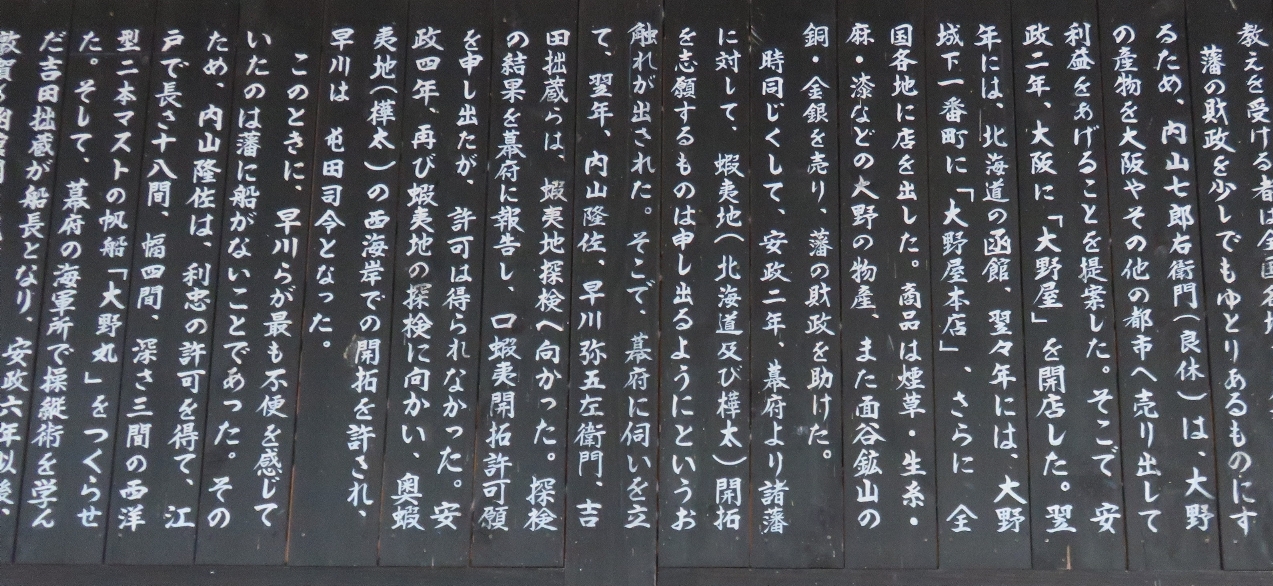 教えを受ける者は全国各地
藩の財政を少しでもゆとりあるものにす
るため、内山七郎右衛門(良休)は、大野
の産物を大阪やその他の都市へ売り出して
利益をあげることを提案した。そこで、安
政二年、大阪に「大野屋」を開店した。翌
年には、北海道の函館、翌々年には、大野
城下一番町に「大野屋本店」、さらに 全
国各地に店を出した。商品は煙草・生糸・
麻・漆などの大野の物産、また面谷鉱山の
銅・金銀を売り、藩の財政を助けた。
時同じくして、安政二年、幕府より諸藩
に対して、蝦夷地(北海道及び樺太)開拓
を志願するものは申し出るようにというお
触れが出された。そこで、幕府に伺いを立
て、翌年、内山隆佐、早川弥五左衛門、吉
田拙蔵らは、蝦夷地探検へ向かった。探検
の結果を幕府に報告し、口蝦夷開拓許可願
を申し出たが、許可は得られなかった。安
政四年、再び蝦夷地の探検に向かい、奥蝦
夷地(樺太)の西海岸での開拓を許され、
早川は 屯田司令となった。
このときに、早川らが最も不便を感じて
いたのは藩に船がないことであった。その
ため、内山隆佐は、利忠の許可を得て、江
戸で長さ十八間、幅四間、深さ三間の西洋
型二本マストの帆船「大野丸」をつくらせ
た。そして、幕府の海軍所で操縦術を学ん
だ吉田拙蔵が船長となり、安政六年以後、
敦賀